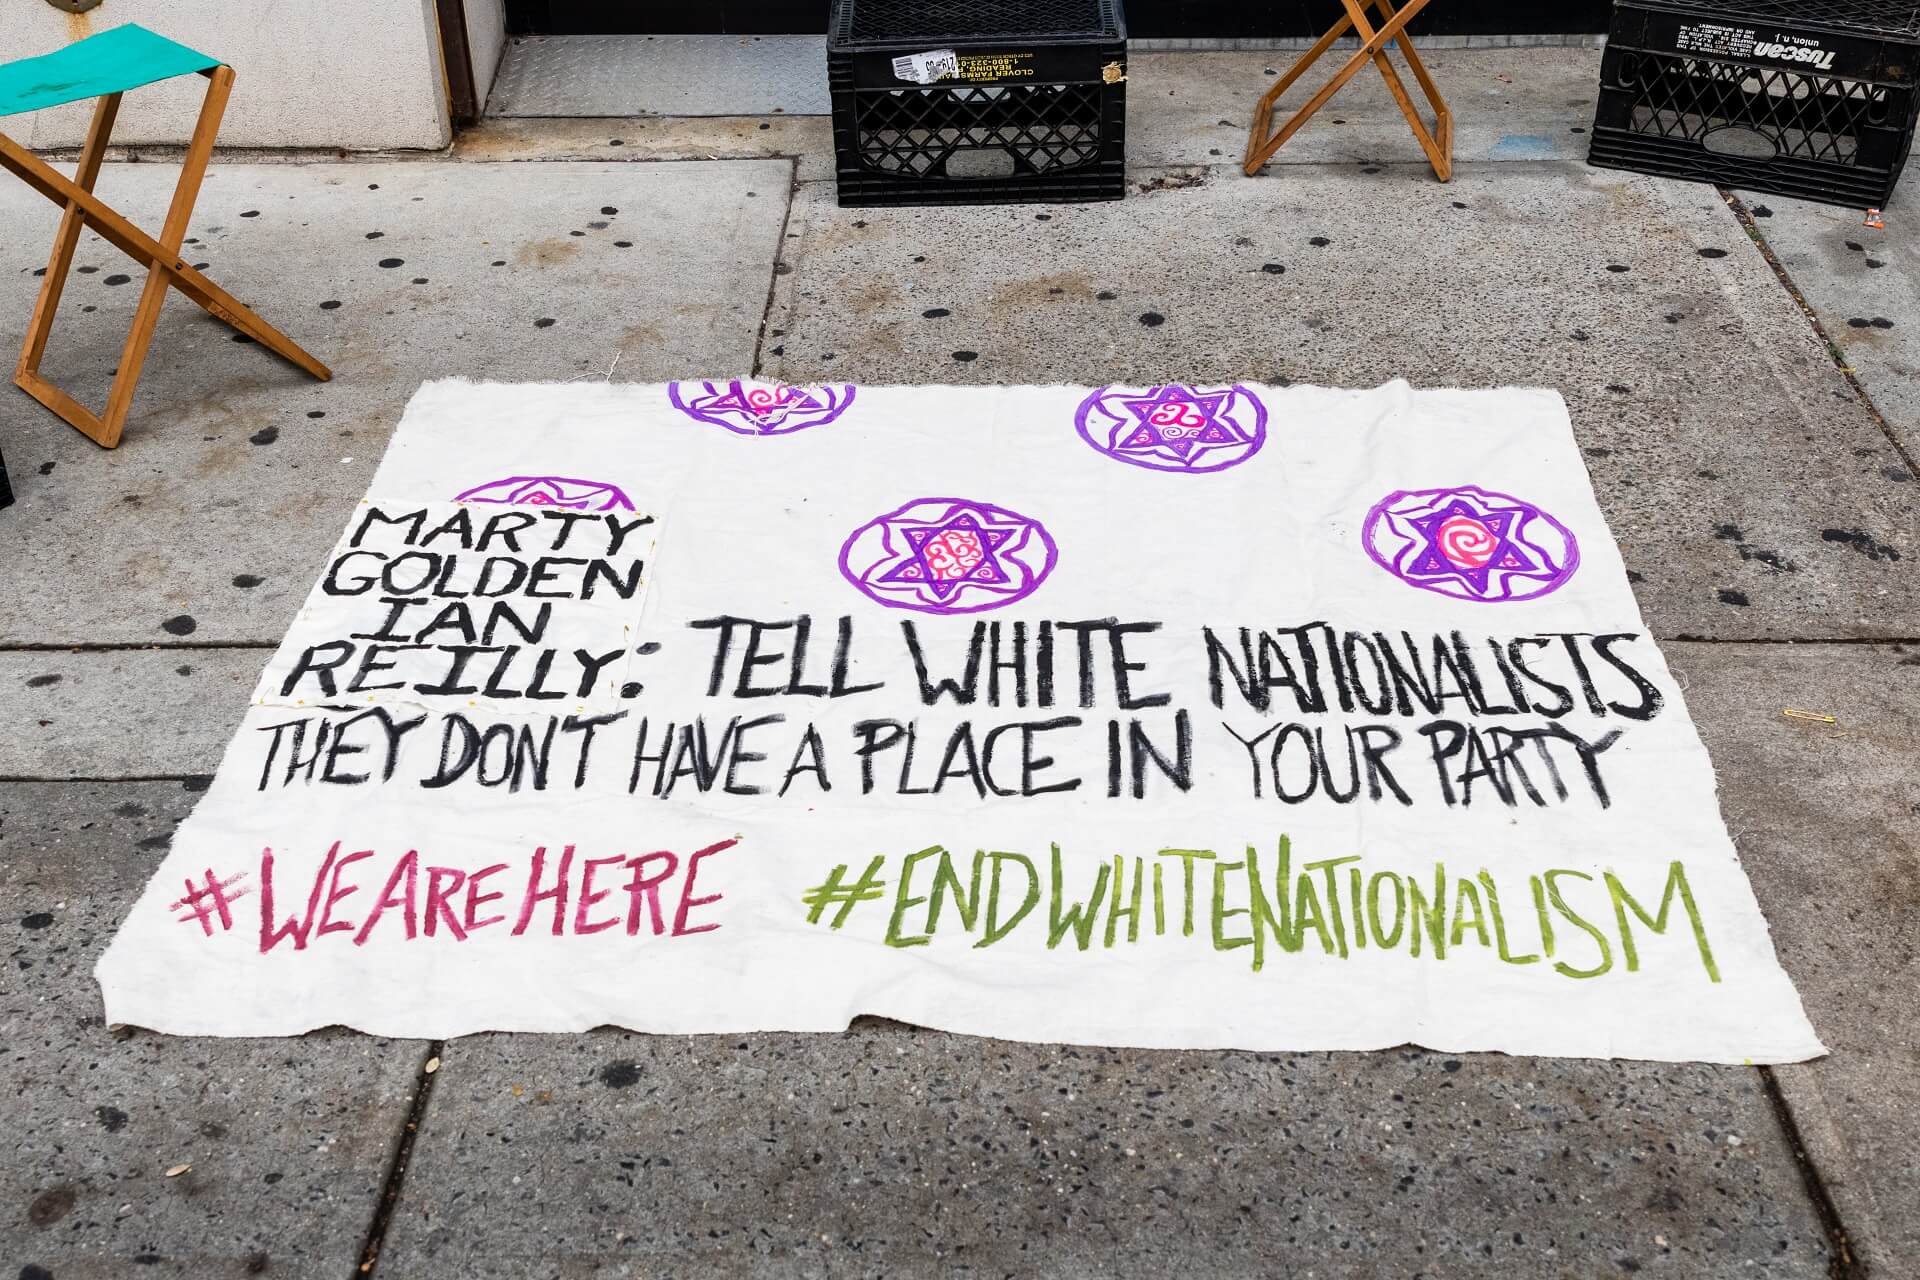 219-05
PROPERTY OF
CLOVER FARMS DAIRY
READING, PA
1-800-323-0
Tuscan
union, n.j.
MARTY
GOLDEN
IAN
REILLY: TELL WHITE NATIONALISTS
THEY DON'T HAVE A PLACE IN YOUR PARTY
#WEAREHERE #ENDWHITENATIONALISM